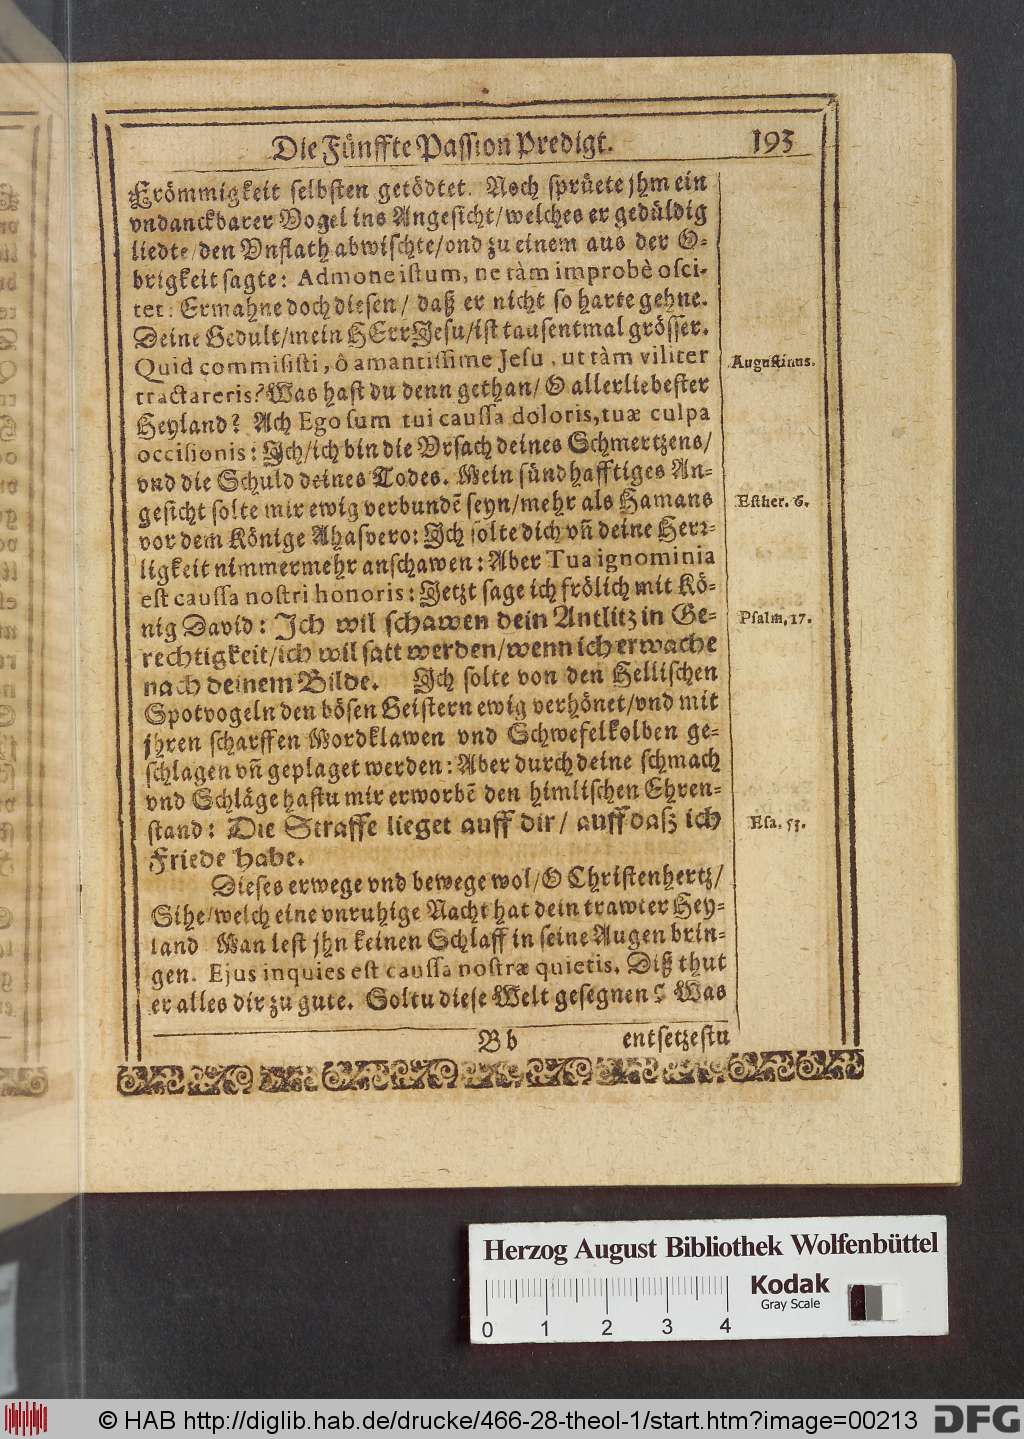 Die Fünffte Passion Predigt. 193
Frömmigkeit selbsten getödtet. Noch sprüete jhm ein
vndanckbarer Vogel ins Angesicht/welches er gedüldig
liedte/den Vnflath abwischte/vnd zu einem aus der O-
brigkeit sagte: Admone istum, ne tàm improbè osci-
tet: Ermahne doch diesen/ daß er nicht so harte gehne.
Deine Gedult/mein HErr Jesu/ist tausentmal grösser.
Quid commisisti, ô amantissime Jesu, ut tàm viliter
tractareris? Was hast du denn gethan/ O allerliebester
Heyland? Ach Ego sum tui caussa doloris, tuæ culpa
occisionis: Ich/ich bin die Vrsach deines Schmertzens/
vnd die Schuld deines Todes. Mein sündhafftiges An-
gesicht solte mir ewig verbundē seyn/mehr als Hamans
vor dem Könige Ahasvero: Ich solte dich vn̄ deine Herr-
ligkeit nimmermehr anschawen: Aber Tua ignominia
est caussa nostri honoris: Jetzt sage ich frölich mit Kö-
nig David: Ich wil schawen dein Antlitz in Ge-
rechtigkeit/ich wil satt werden/wenn ich erwache
nach deinem Bilde. Ich solte von den Hellischen
Spotvogeln den bösen Geistern ewig verhönet/vnd mit
jhren scharffen Mordklawen vnd Schwefelkolben ge-
schlagen vn̄ geplaget werden: Aber durch deine schmach
vnd Schläge hastu mir erworbē den himlischen Ehren-
stand: Die Straffe lieget auff dir/ auff daß ich
Friede habe.
Dieses erwege vnd bewege wol/O Christenhertz/
Sihe/welch eine vnruhige Nacht hat dein trawter Hey-
land Man lest jhn keinen Schlaff in seine Augen brin-
gen. Ejus inquies est caussa nostræ quietis. Diß thut
er alles dir zu gute. Soltu diese Welt gesegnen? Was
Bb entsetzestu
Augustinus.
Esther. 6.
Psalm, 17.
Esa. 53.
Herzog August Bibliothek Wolfenbüttel
0 1 2 3 4
Kodak
Gray Scale
© HAB http://diglib.hab.de/drucke/466-28-theol-1/start.htm?image=00213
DFG